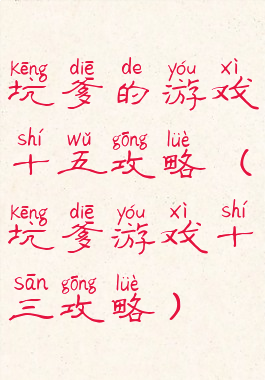 kēng diē de yóu xì
坑爹的游戏
shí wǔ gōng lüè
十五攻略（
kēng diē yóu xì shí
坑爹游戏十
sān gōng lüè
三攻略）